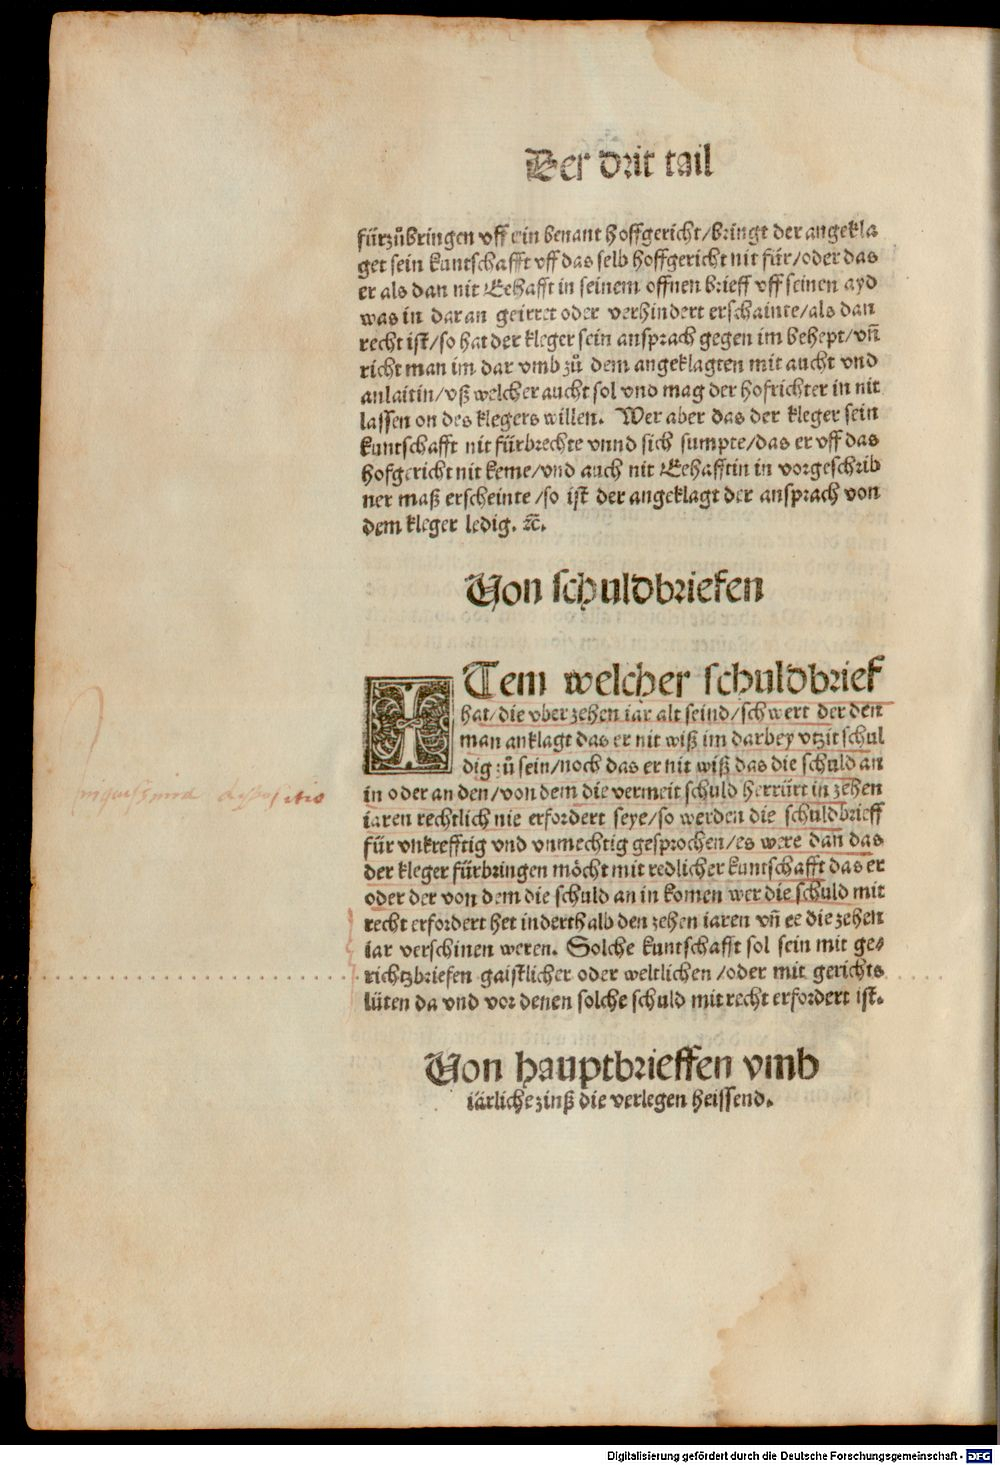 Der drit tail
fürzůbringen vff ein benant hoffgericht/bringt der angekla
get sein kuntschafft vff das selb hoffgericht nit für/oder das
er als dan nit Eehafft in seinem offnen brieff vff seinen ayd
was in daran geirret oder verhindert erschainte/als dan
recht ist/so hat der kleger sein ansprach gegen im behept/vñ
richt man im dar vmb zů dem angeklagten mit aucht vnd
anlaitin/vß welcher aucht sol vnd mag der hofrichter in nit
lassen on des klegers willen. Wer aber das der kleger sein
kuntschafft nit fürbrechte vnnd sich sumpte/das er vff das
hofgericht nit keme/vnd auch nit Eehafftin in vorgeschrib
ner maß erscheinte/so ist der angeklagt der ansprach von
dem kleger ledig. ꝛc̃.
Von schuldbriefen
ITem welcher schuldbrief
hat/die vber zehen iar alt seind/schwert der den
man anklagt das er nit wiß im darbey vtzit schul
dig zů sein/noch das er nit wiß das die schuld an
in oder an den/von dem die vermeit schuld herrürt in zehen
iaren rechtlich nie erfordert seye/so werden die schuldbrieff
für vnkrefftig vnd vnmechtig gesprochen/es were dan das
der kleger fürbringen möcht mit redlicher kuntschafft das er
oder der von dem die schuld an in komen wer die schuld mit
recht erfordert het inderthalb den zehen iaren vñ ee die zehen
iar verschinen weren. Solche kuntschafft sol sein mit ge⸗
richtzbriefen gaistlicher oder weltlichen/oder mit gerichts
lüten da vnd vor denen solche schuld mit recht erfordert ist.
dispositio
Von hauptbrieffen vmb
iärliche zinß die verlegen heissend.
Digitalisierung gefördert durch die Deutsche Forschungsgemeinschaft - DFG